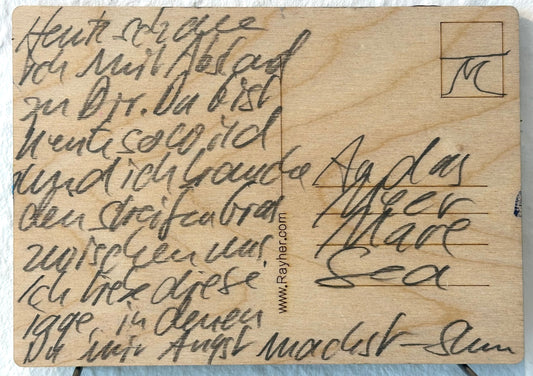 Heute schaue
ich mit Abstand
zu Dir. Du bist
heute so wild
und ich brauche
den Streifen Gras
zwischen uns.
Ich liebe diese
Tage, in denen
Du mir Angst machst –
M
An das
Meer
Mare
Sea
www.Rayher.com